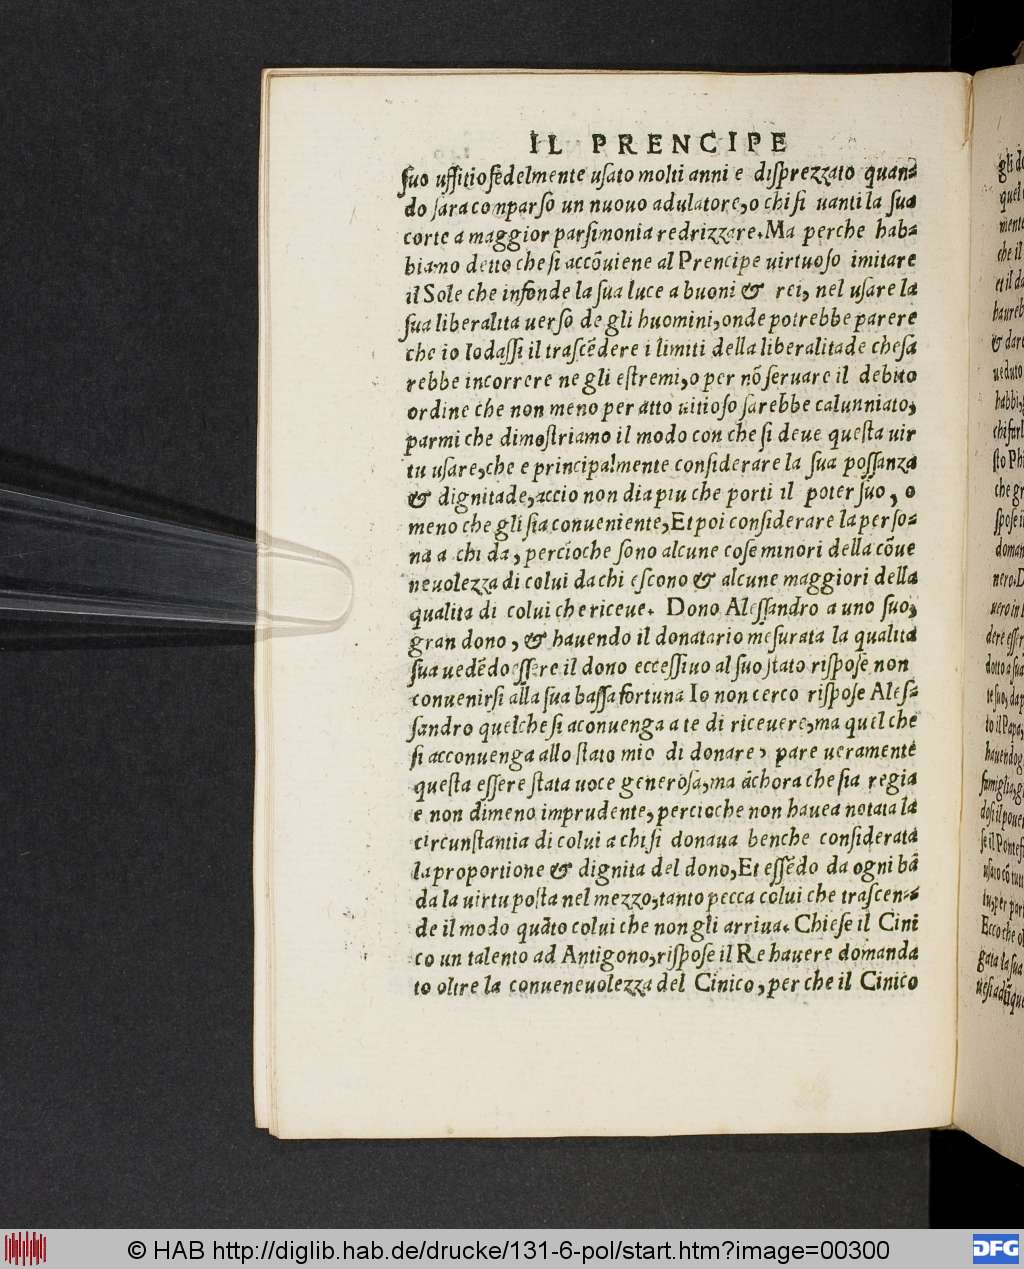 IL PRENCIPE
ſuo uffitio fedelmente uſato molti anni e diſprezzato quan-
do ſara comparſo un nuouo adulatore, o chi ſi uanti la ſua
corte a maggior parſimonia redrizzare. Ma perche hab-
biamo detto che ſi accõuiene al Prencipe uirtuoſo imitare
il Sole che infonde la ſua luce a buoni & rei, nel uſare la
ſua liberalita uerſo de gli huomini, onde potrebbe parere
che io lodaſſi il traſcẽdere i limiti della liberalitade che ſa
rebbe incorrere ne gli eſtremi, o per nõ ſeruare il debito
ordine che non meno per atto uitioſo ſarebbe calunniato,
parmi che dimoſtriamo il modo con che ſi deue queſta uir
tu uſare, che e principalmente conſiderare la ſua poſſanza
& dignitade, accio non dia piu che porti il poter ſuo, o
meno che gli ſia conueniente, Et poi conſiderare la perſo-
na a chi da, percioche ſono alcune coſe minori della cõue
neuolezza di colui da chi eſcono & alcune maggiori della
qualita di colui che riceue. Dono Aleſſandro a uno ſuo,
gran dono, & hauendo il donatario meſurata la qualita
ſua uedẽdo eſſere il dono ecceſſiuo al ſuo ſtato riſpoſe non
conuenirſi alla ſua baſſa fortuna Io non cerco riſpoſe Aleſ-
ſandro quel che ſi aconuenga a te di riceuere, ma quel che
ſi acconuenga allo ſtato mio di donare, pare ueramente
queſta eſſere ſtata uoce generoſa, ma ãchora che ſia regia
e non dimeno imprudente, percioche non hauea notata la
circunſtantia di colui a chi ſi donaua benche conſiderata
la proportione & dignita del dono, Et eſſẽdo da ogni bã
da la uirtu poſta nel mezzo, tanto pecca colui che traſcen-
de il modo quãto colui che non gli arriua. Chieſe il Cini
co un talento ad Antigono, riſpoſe il Re hauere domanda
to oltre la conueneuolezza del Cinico, per che il Cinico
© HAB http://diglib.hab.de/drucke/131-6-pol/start.htm?image=00300
DFG